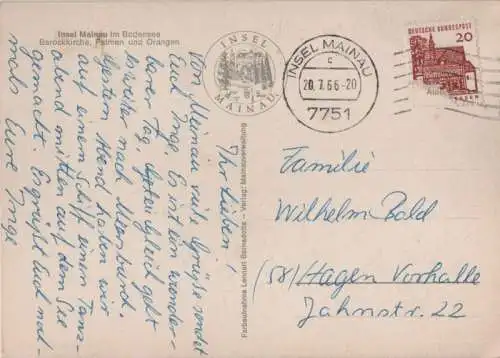 Insel Mainau im Bodensee
Barockkirche, Palmen und Orangen
INSEL
MAINAU
INSEL MAINAU
c
20.7.66-20
7751
DEUTSCHE BUNDESPOST
20
Ihr Lieben!
Von Mainau viele Grüße sendet
Euch Inge. Es ist ein wunder-
barer Tag, gleich geht
es weiter nach Meersburg.
Gestern Abend haben wir
auf einem Schiff einen Tanz-
abend mitten auf dem See
gemacht. Es grüßt Euch noch-
mals Eure Inge
Farbaufnahme Lennart Bernadotte - Verlag: Mainauverwaltung
Familie
Wilhelm Bold
(58) Hagen Vorhalle
Jahnstr. 22